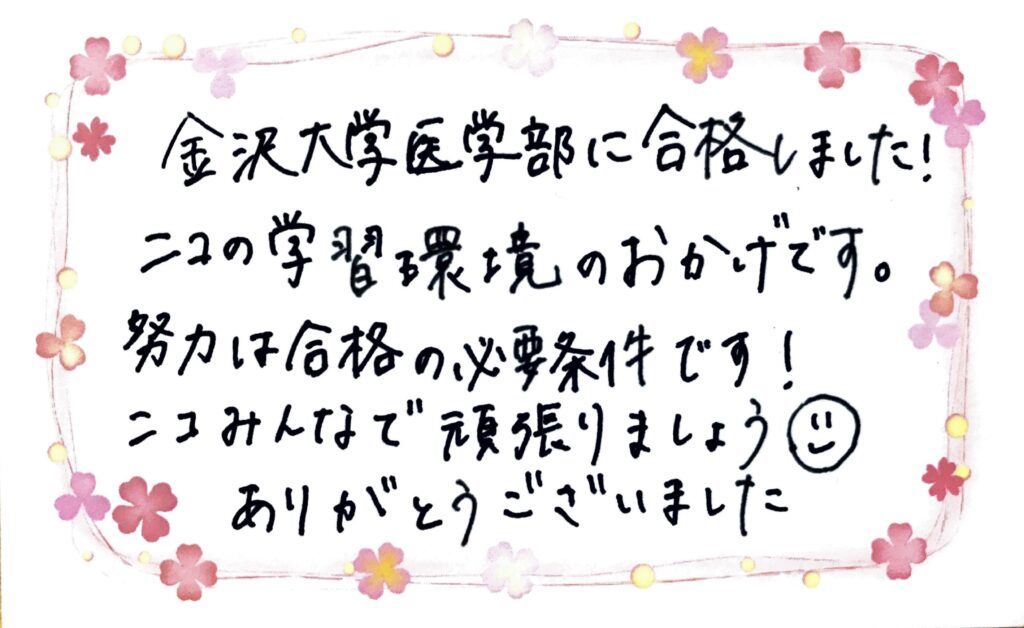 金沢大学医学部に合格しました!
ニコの学習環境のおかげです。
努力は合格の必要条件です!
ニコみんなで頑張りましょう
ありがとうございました